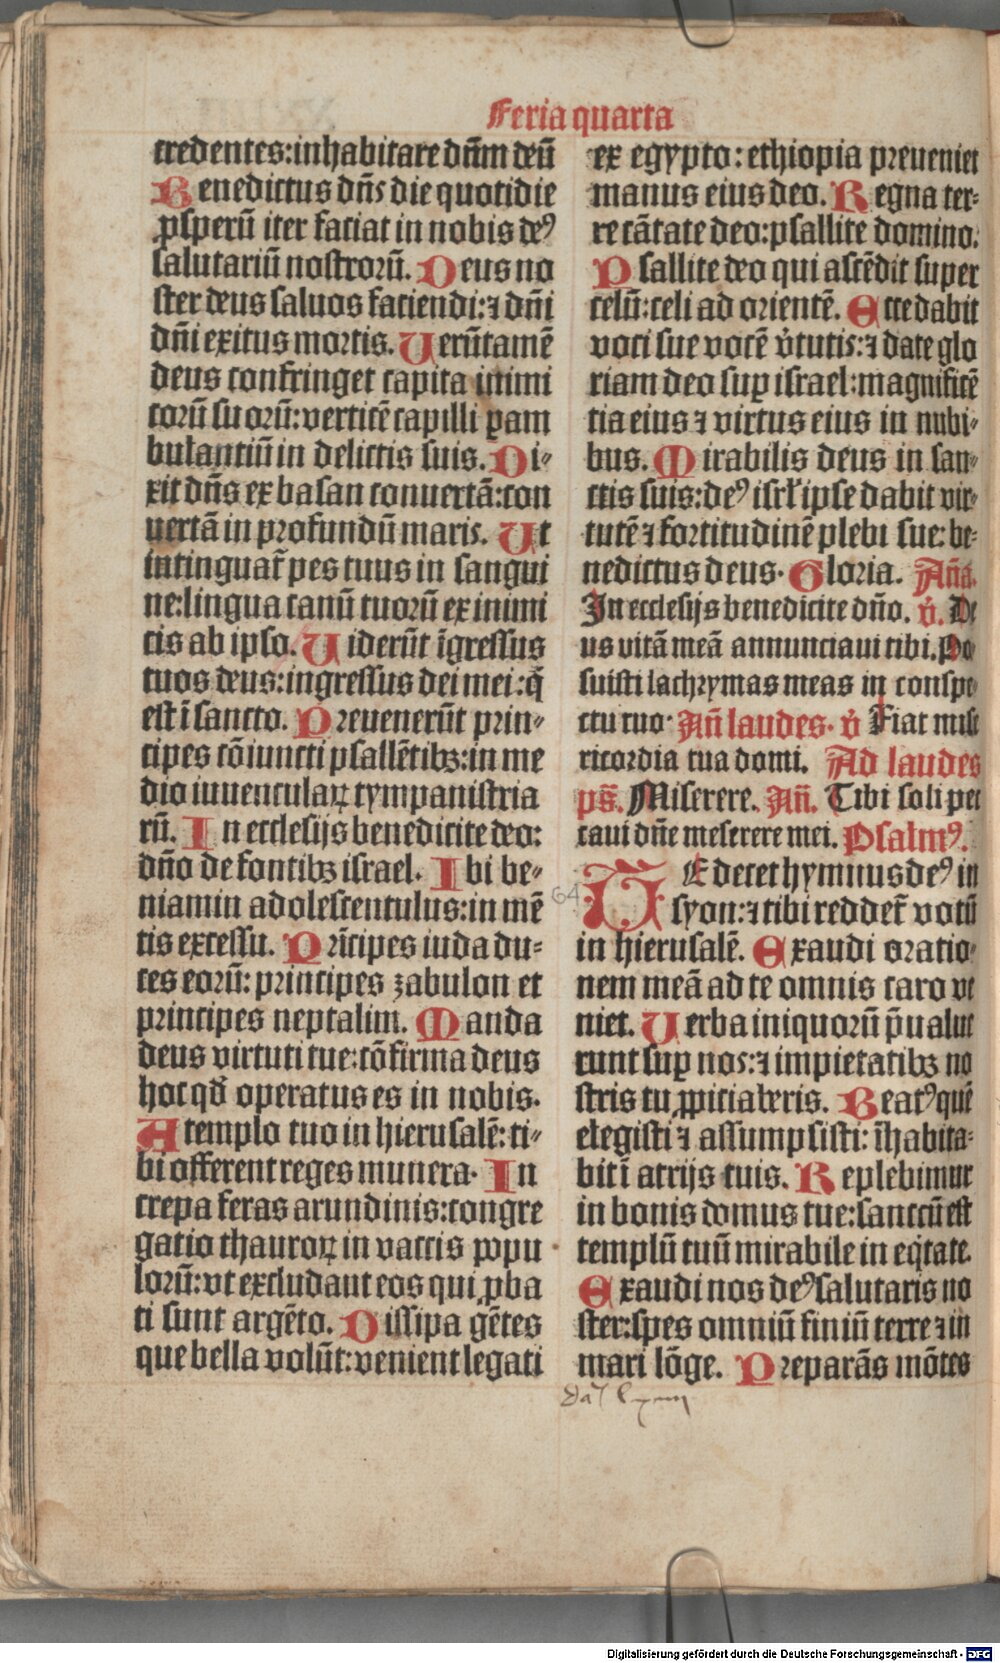 Feria quarta
credentes:inhabitare dn̄m deū
Benedictus dn̄s die quotidie
ꝓsperū iter faciat in nobis deꝰ
salutariū nostrorū. Deus no
ster deus saluos faciendi:⁊ dn̄i
dn̄i exitus mortis. Uerūtamē
deus confringet capita inimi
corū suorū:verticē capilli ꝑam
bulantiū in delictis suis. Di⸗
xit dn̄s ex basan conuertā:con
uertā in profundū maris. Ut
intinguat᷑ pes tuus in sangui
ne:lingua canū tuorū ex inimi
cis ab ipso. Uiderūt īgressus
tuos deus:ingressus dei mei:q̄
est ī sancto. Preuenerūt prin⸗
cipes cōiuncti psallētibꝫ:in me
dio iuuenculaꝝ tympanistria
rū. In ecclesijs benedicite deo:
dn̄o de fontibꝫ israel. Ibi be⸗
niamin adolescentulus:in mē
tis excessu. Prīcipes iuda du⸗
ces eorū: principes zabulon et
principes neptalim. Manda
deus virtuti tue:cōfirma deus
hoc qd̄ operatus es in nobis.
A templo tuo in hierusalē:ti⸗
bi offerent reges munera. In
crepa feras arundinis:congre
gatio thauroꝝ in vaccis popu
lorū:vt excludant eos qui ꝓba
ti sunt argēto. Dissipa gētes
que bella volūt:venient legati
ex egypto: ethiopia preueniet
manus eius deo. Regna ter⸗
re cātate deo:psallite domino.
Psallite deo qui ascēdit super
celū:celi ad orientē. Ecce dabit
voci sue vocē v̓tutis:⁊ date glo
riam deo suꝑ israel:magnificē
tia eius ⁊ virtus eius in nubi⸗
bus. Mirabilis deus in san⸗
ctis suis:deꝰ isrl̄ ipse dabit vir⸗
tutē ⁊ fortitudinē plebi sue:be⸗
nedictus deus. Gloria. An̄a.
In ecclesijs benedicite dn̄o. v̓. De
us vitā meā annunciaui tibi. Po
suisti lachrymas meas in conspe
ctu tuo. An̄ laudes. v̓ Fiat mise
ricordia tua domi. Ad laudes
ps̄. Miserere. An̄. Tibi soli pec
caui dn̄e meserere mei. Psalmꝰ.
64 TE decet hymnus deꝰ in
syon:⁊ tibi reddet᷑ votū
in hierusalē. Exaudi oratio⸗
nem meā ad te omnis caro ve
niet. Uerba iniquorū p̄ualue
runt suꝑ nos:⁊ impietatibꝫ no
stris tu ꝓpiciaberis. Beatꝰ quē
elegisti ⁊ assumpsisti: īhabita⸗
bit ī atrijs tuis. Replebimur
in bonis domus tue:sanctū est
templū tuū mirabile in eq̇tate.
Exaudi nos deꝰ salutaris no
ster:spes omniū finiū terre ⁊ in
mari lōge. Preparās mōtes
Digitalisierung gefördert durch die Deutsche Forschungsgemeinschaft - DFG